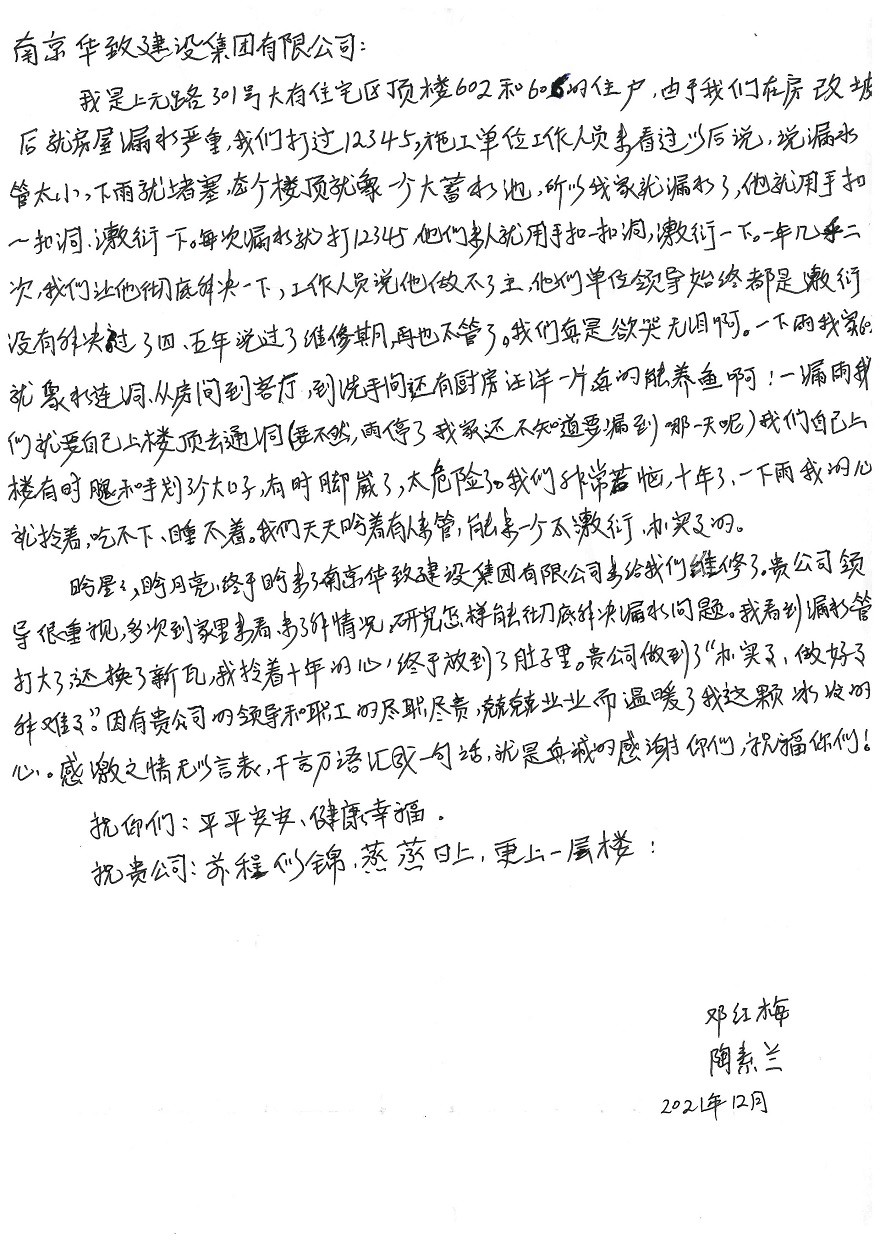 南京华致建设集团有限公司：
我是上元路301号大存住宅区顶楼602和606的住户，由于我们在房改坡
后就房屋漏水严重，我们打过12345，施工单位工作人员来看过以后说，说漏水
管太小，下雨就堵塞，整个楼顶就象一个大蓄水池，所以我家就漏水了，他就用手扣
一扣洞、敷衍一下。每次漏水就打12345，他们来人就用手扣一扣洞，敷衍一下。一年几乎二
次，我们让他彻底解决一下，工作人员说他做不了主，他们单位领导始终都是敷衍
没有解决过了四、五年说过了维修期，再也不管了。我们真是欲哭无泪啊。一下雨我家
就象水连洞、从房间到客厅，到洗手间还有厨房汪洋一片真的能养鱼啊！一漏雨我
们就要自己上楼顶去通洞（要不然，雨停了我家还不知道要漏到哪一天呢）我们自己上
楼有时腿和手划了个大口子，有时脚崴了，太危险了。我们非常苦恼，十年了、一下雨我的心
就拎着，吃不下、睡不着。我们天天盼着有人来管，能来一个不敷衍、办实事的。
盼星星，盼月亮，终于盼来了南京华致建设集团有限公司来给我们维修了。贵公司领
导很重视，多次到家里来看，来了解情况，研究怎样能彻底解决漏水问题。我看到漏水管
打大了，还换了新瓦，我拎着十年的心，终于放到了肚子里。贵公司做到了“办实事、做好事
解难事”。因有贵公司的领导和职工的尽职，尽责，兢兢业业而温暖了我这颗冰冷的
心。感激之情无以言表，千言万语汇成一句话，就是真诚的感谢你们，祝福你们！
祝你们：平平安安、健康幸福。
祝贵公司：前程似锦，蒸蒸日上，更上一层楼！
邓红梅
陶素兰
2021年12月